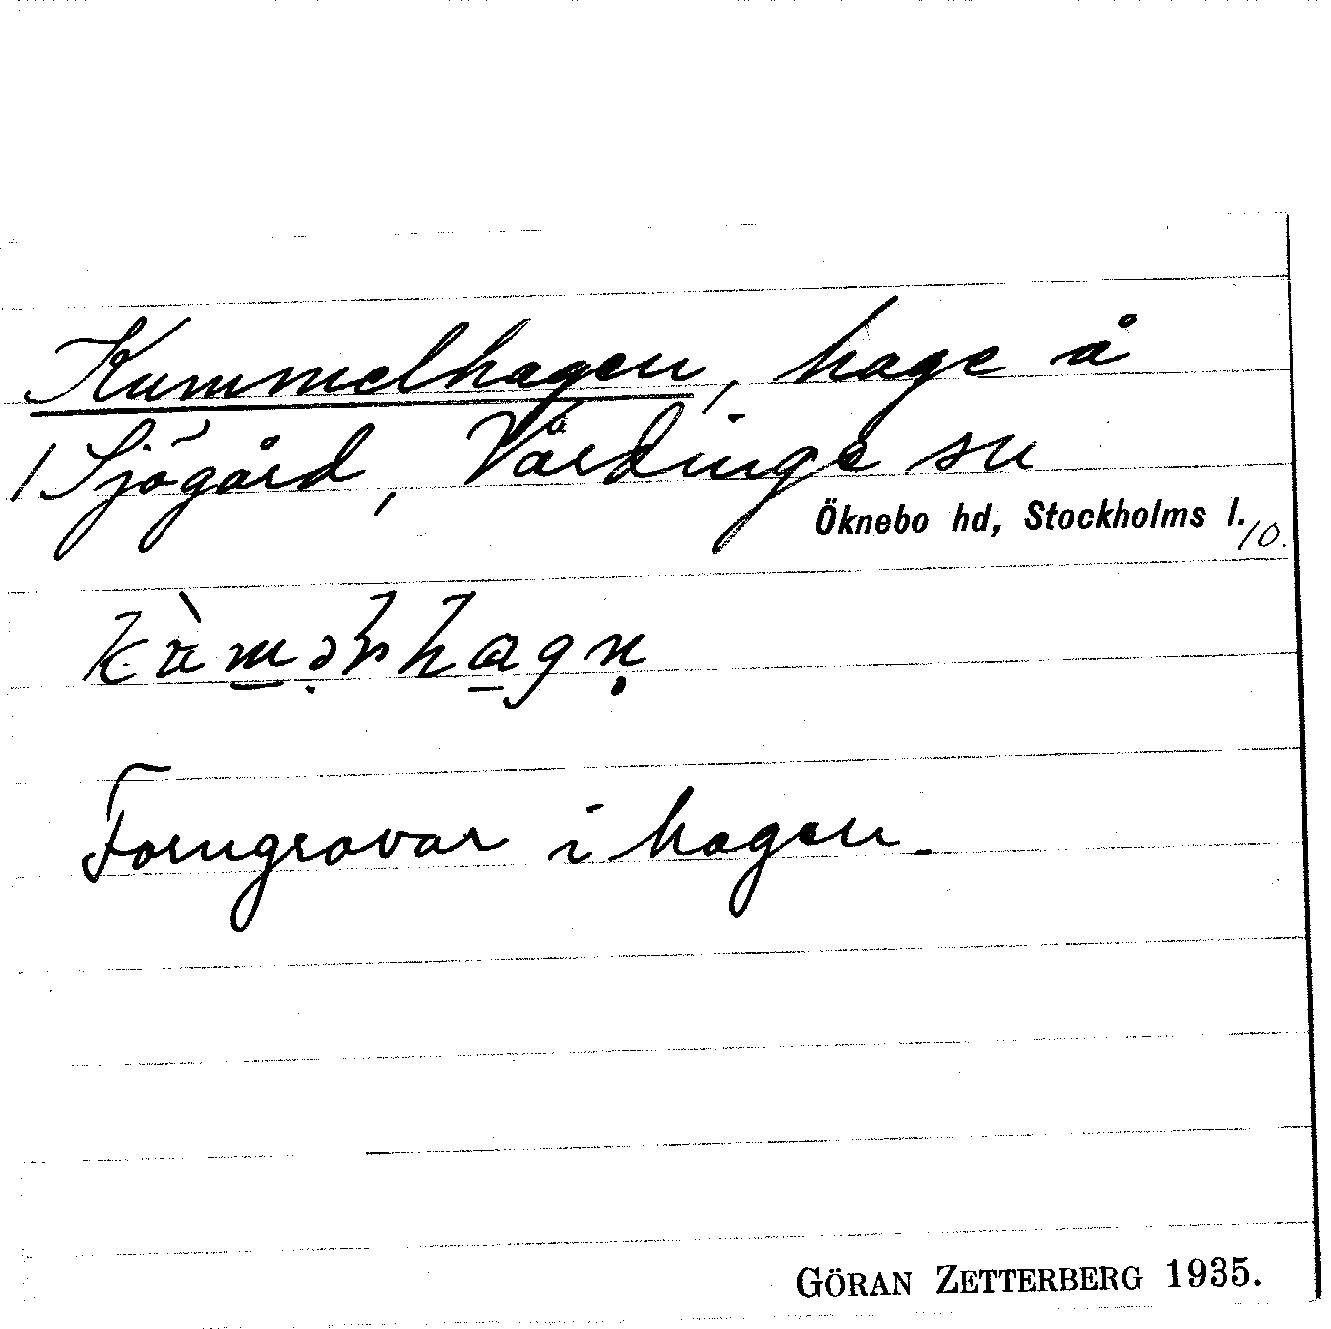 Kummelhagen, hage å
1 Sjögård, Vårdinge sn
Öknebo hd, Stockholms l. 10.
Forngravar i hagen.
GÖRAN ZETTERBERG 1935.